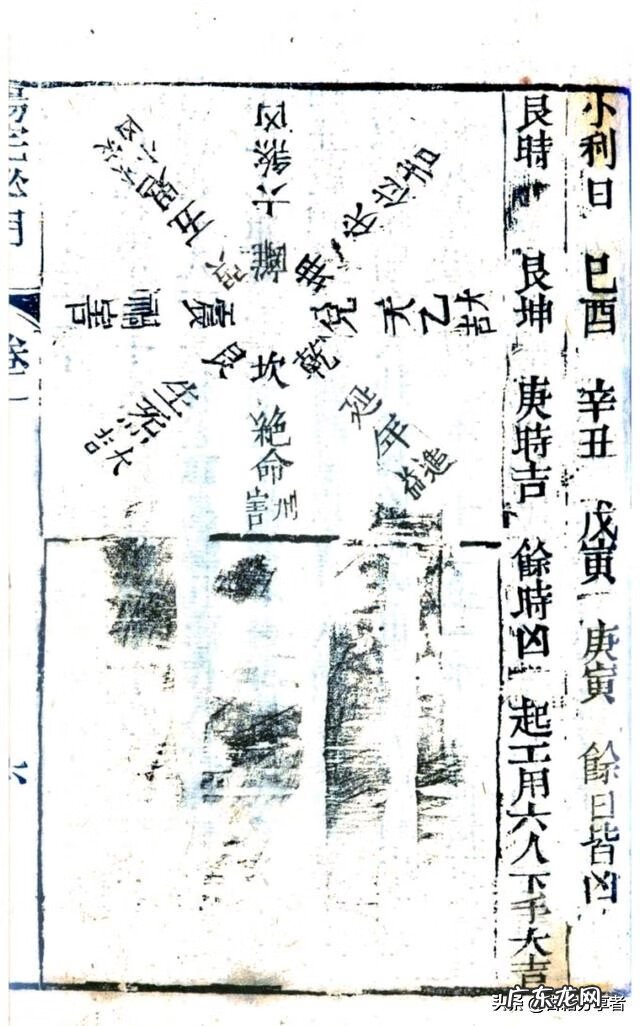 小利日 巳酉 辛丑 戊寅 庚寅 餘日皆凶
艮時 艮坤 庚時吉 餘時凶 起工用六人下手大吉
離 六煞凶
坤
兌 天乙 大吉
乾 延年 進益
坎 絕命
艮 生炁 大吉
震 禍害
巽 五鬼
卷二
广东龙网